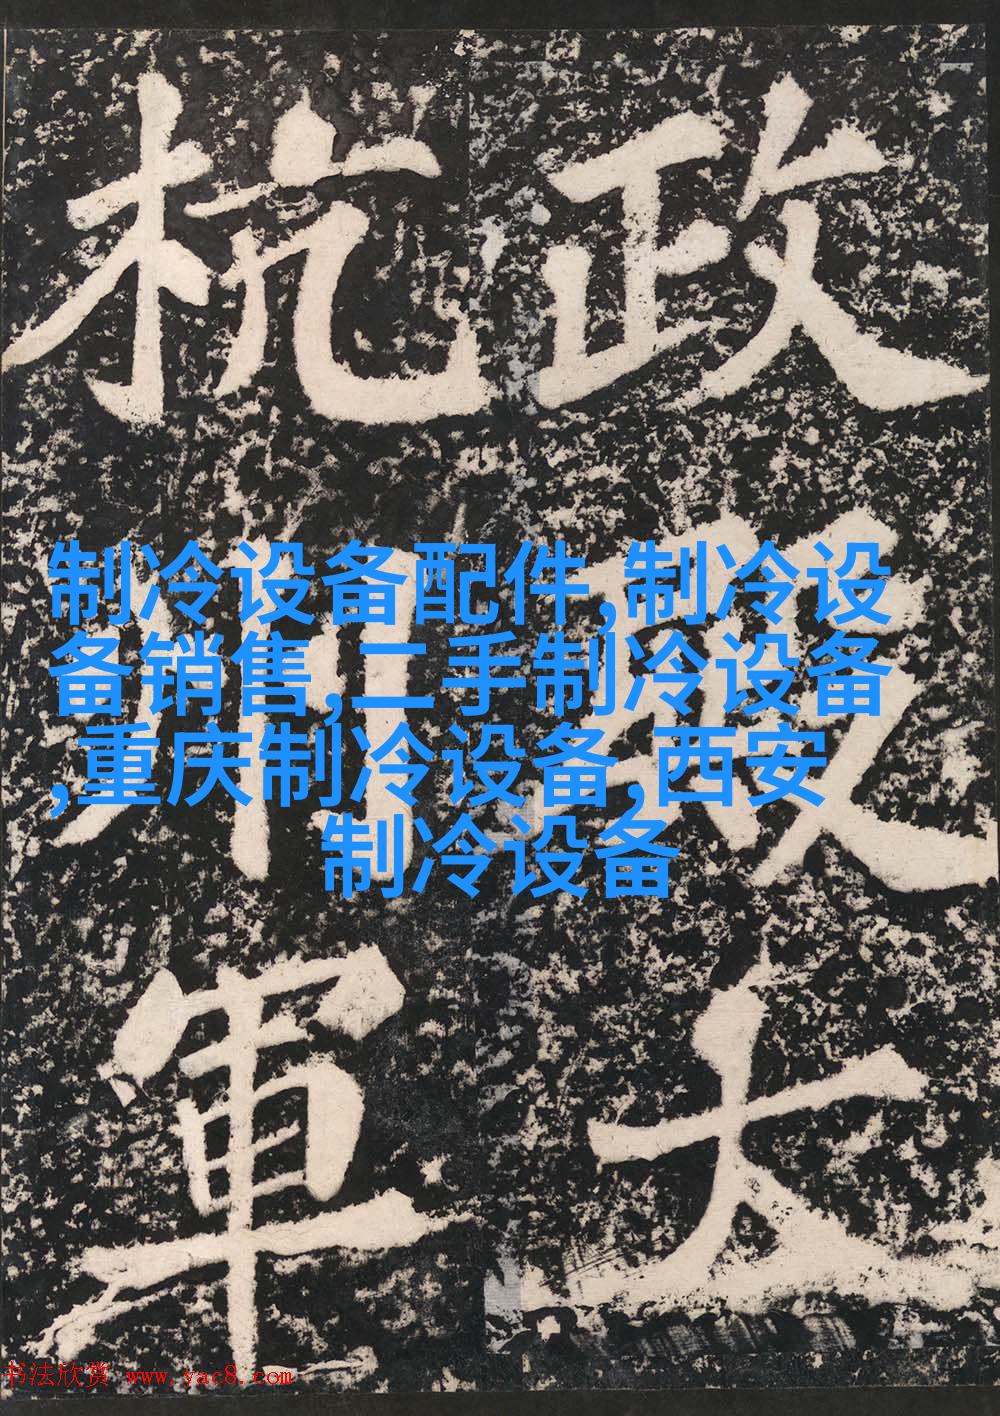 政殿大
杭州軍
制冷设备配件,制冷设
备销售,二手制冷设备
,重庆制冷设备,西安
制冷设备
书法欣赏 www.yac8.com